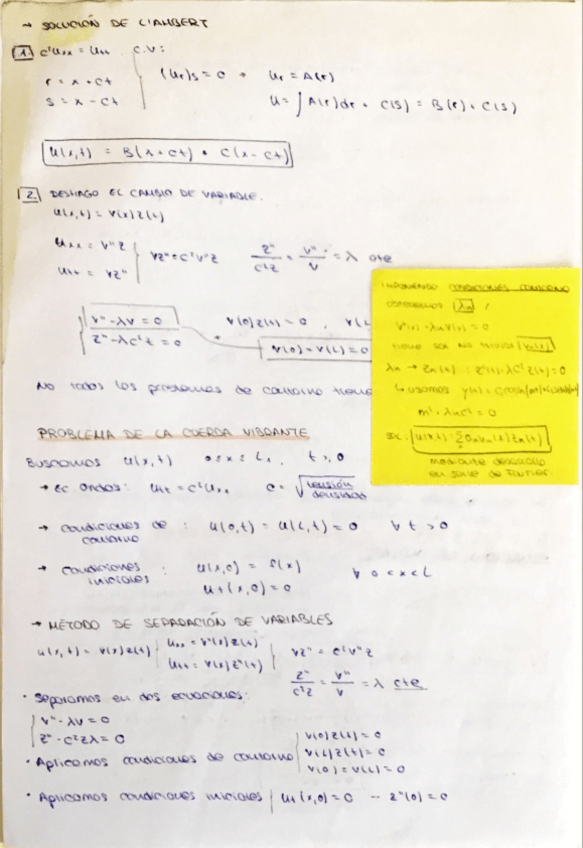 → SOLUCIÓN DE L'AMBERT
1. c²Uxx = Utt C.V:
r = x + ct
s = x - ct
(Ur)s = 0 → Ur = A(r)
U = ∫A(r)dr + C(s) = B(r) + C(s)
U(x,t) = B(x+ct) + C(x-ct)
2. DESHAGO EL CAMBIO DE VARIABLE.
U(x,t) = V(x)Z(t)
Uxx = V''Z
Utt = VZ''
VZ'' = c²V''Z
Z''/c²Z = V''/V = λ cte
V'' - λV = 0
Z'' - λc²t = 0
V(0)Z(t) = 0 , V(L
V(0) = V(L) = 0
No todos los problemas de contorno tiene
IMPONIENDO CONDICIONES CONTORNO
OBTENEMOS λn /
V''(x) - λnV(x) = 0
tiene SOL NO TRIVIAL Vn(x)
λn → Zn(t) : Z''(t) - λc²Z(t) = 0
↳ usamos
m² - λnc² = 0
SOL: U(x,t) = Σ anVn(x)Zn(t)
mediante desarrollo
en serie de Fourier.
PROBLEMA DE LA CUERDA VIBRANTE
Buscamos U(x,t) 0≤x≤L, t>0
→ Ec Ondas: Utt = c²Uxx c = √(tensión/densidad)
→ condiciones de contorno : U(0,t) = U(L,t) = 0 ∀ t > 0
→ condiciones iniciales : U(x,0) = f(x)
Ut(x,0) = 0
∀ 0<x<L
→ MÉTODO DE SEPARACIÓN DE VARIABLES
U(x,t) = V(x)Z(t)
Uxx = V''(x)Z(t)
Utt = V(x)Z''(t)
VZ'' = c²V''Z
Z''/c²Z = V''/V = λ cte
· Separamos en dos ecuaciones:
V'' - λV = 0
Z'' - c²Zλ = 0
· Aplicamos condiciones de contorno
V(0)Z(t) = 0
V(L)Z(t) = 0
V(0) = V(L) = 0
· Aplicamos condiciones iniciales Ut(x,0) = 0 → Z'(0) = 0